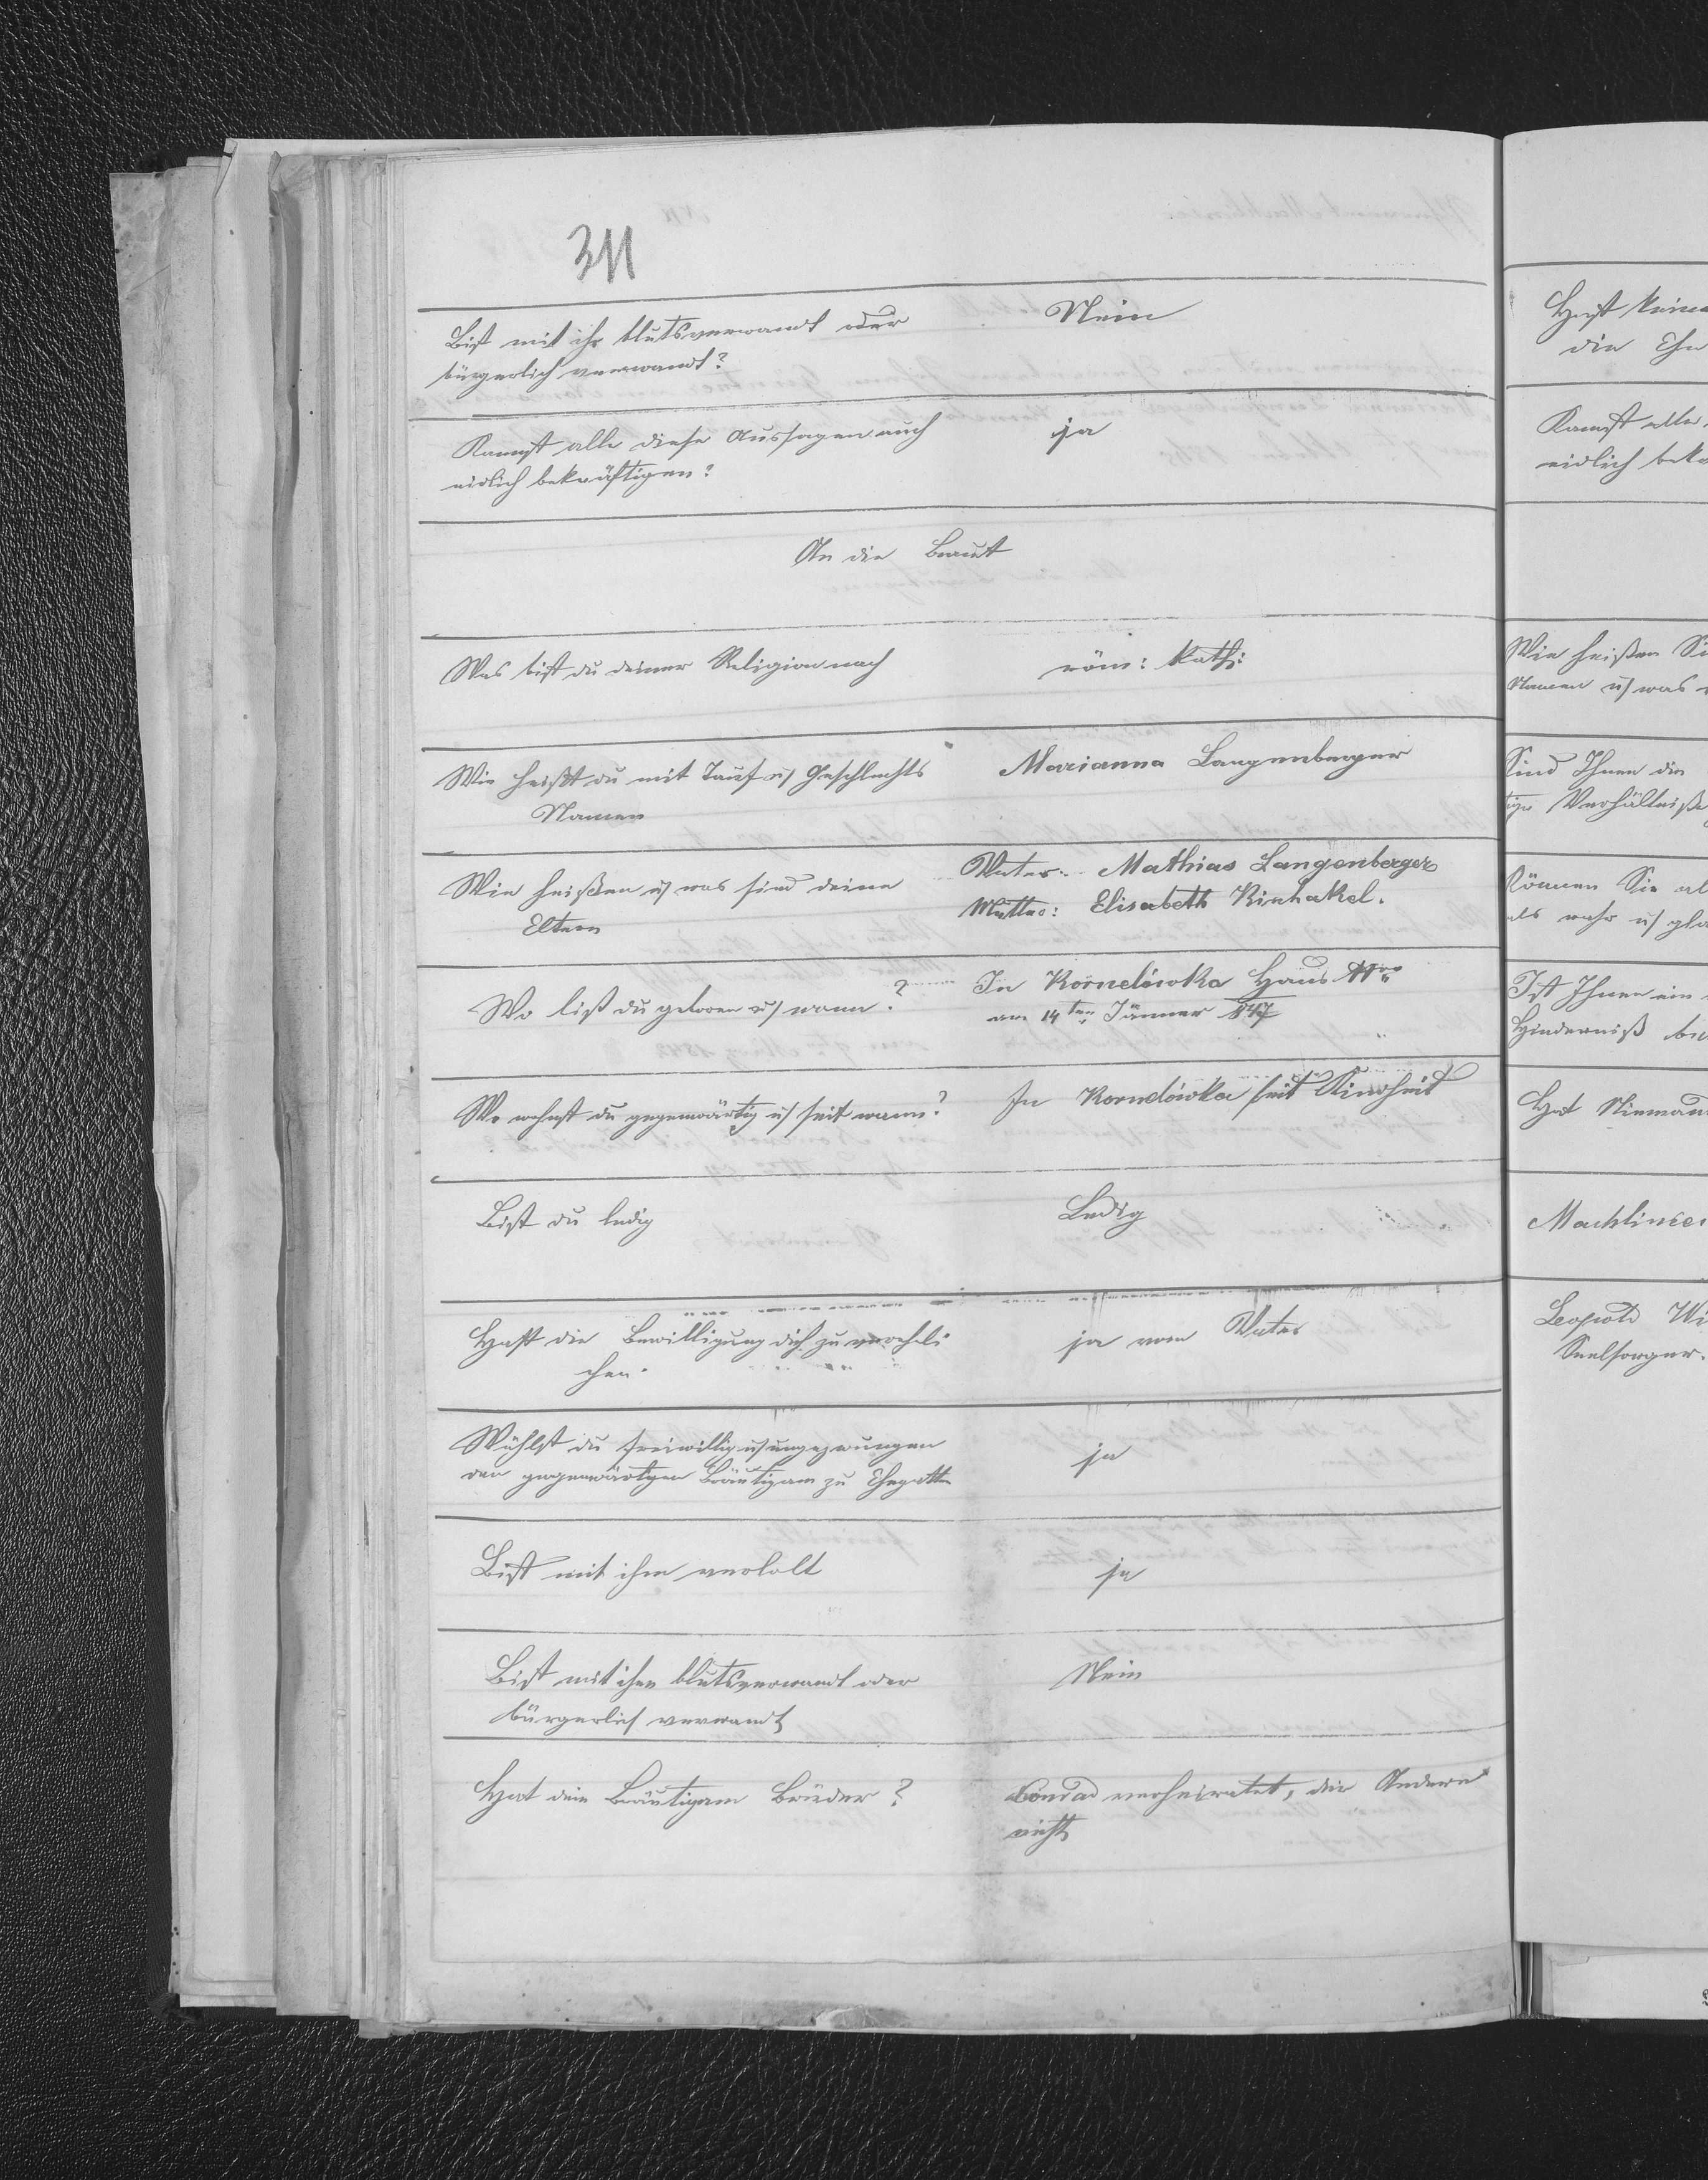 311
Bist mit ihr blutsverwandt oder
bürgerlich verwandt?
Nein
Kannst alle diese Aussagen auch
eidlich bekräftigen?
ja
An die Braut
Was bist du deiner Religion nach
röm: kath:
Wie heißt du mit Tauf u/ Geschlechts
Namen
Marianna Langenberger
Wie heißen u/ was sind deine
Eltern
Vater: Mathias Langenberger
Mutter: Elisabeth Kinhakel.
Wo bist du geboren u/ wann?
In Kornelówka Haus Nro
am 14ten Jänner 847
Wo wohnst du gegenwärtig u/ seit wann?
In Kornelówka seit Kindheit
Bist du ledig
Ledig
Hast die Bewilligung dich zu verehli
chen.
ja vom Vater
Wählst du freiwillig u/ ungezwungen
den gegenwärtigen Bräutigam zu Ehegatten
ja
Bist mit ihm verlobt
ja
Bist mit ihm blutsverwandt oder
bürgerlich verwandt
Nein
Hat dein Bräutigam Brüder?
Conrad verheiratet, die Andern
nicht
Hast keine
die Ehe
Kannst alle
eidlich bek
Wie heißen Si
Namen u/ was
Sind Ihnen die
Verhältniße
Können Sie al
als wahr u/ gla
Ist Ihnen ein
Hinderniß be
Hat Niemand
Machliniec
Leopold Wi
Seelsorger.